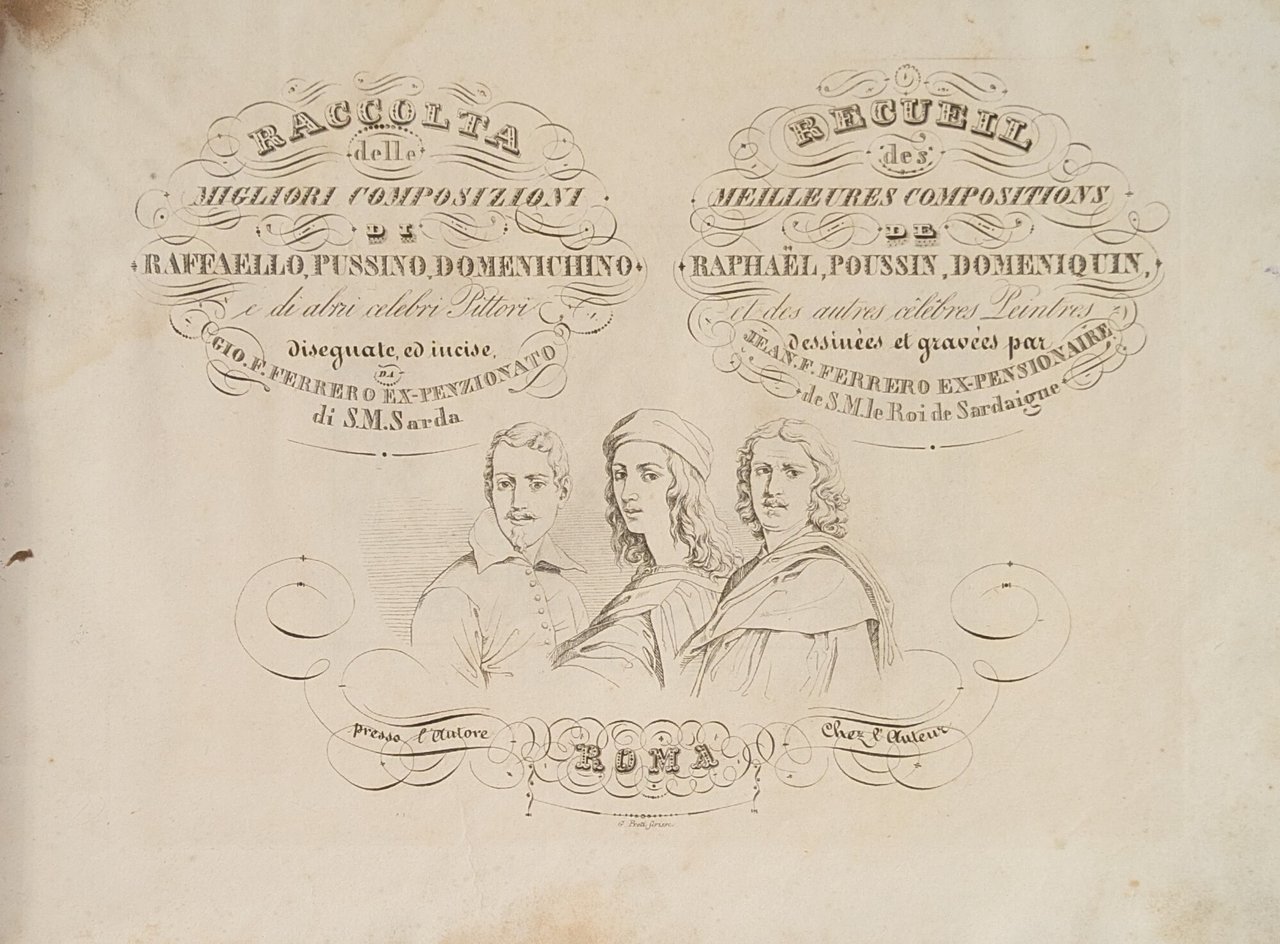 RACCOLTA
delle
MIGLIORI COMPOSIZIONI
DI
RAFFAELLO, PUSSINO, DOMENICHINO
e di altri celebri Pittori
disegnate, ed incise,
DA
GIO. F. FERRERO EX-PENZIONATO
di S.M. Sarda
RECUEIL
des
MEILLEURES COMPOSITIONS
DE
RAPHAËL, POUSSIN, DOMENIQUIN,
et des autres célèbres Peintres
dessinées et gravées par
JEAN. F. FERRERO EX-PENSIONAIRE,
de S.M. le Roi de Sardaigne
presso l'Autore
ROMA
Chez l'Auteur